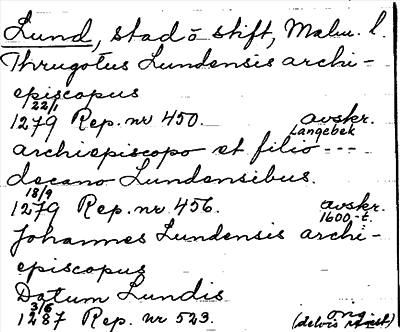 Lund, stad o stift, Malm. l.
Thrugotus Lundensis archi-
episcopus
22/1
1279 Rep. nr 450. avskr.
Langebek
archiepiscopo et filio ---
decano Lundensibus.
18/9
1279 Rep. nr 456. avskr.
1600-t.
Johannes Lundensis archi-
episcopus
Datum Lundis
3/6
1287 Rep. nr 523. orig.
(delvis